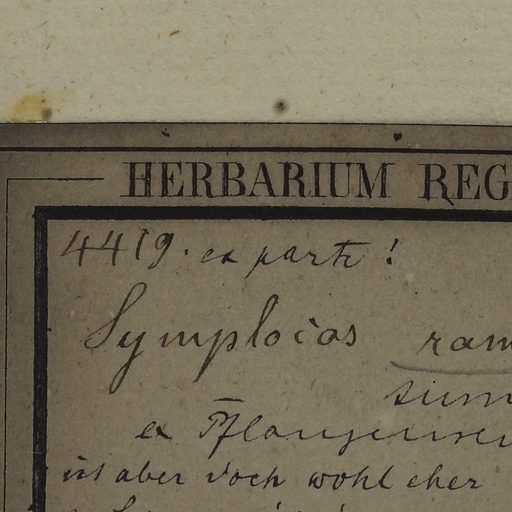 HERBARIUM REG
4419. ex parte!
Symplocos ram
sum
ex
ist aber doch wohl eher